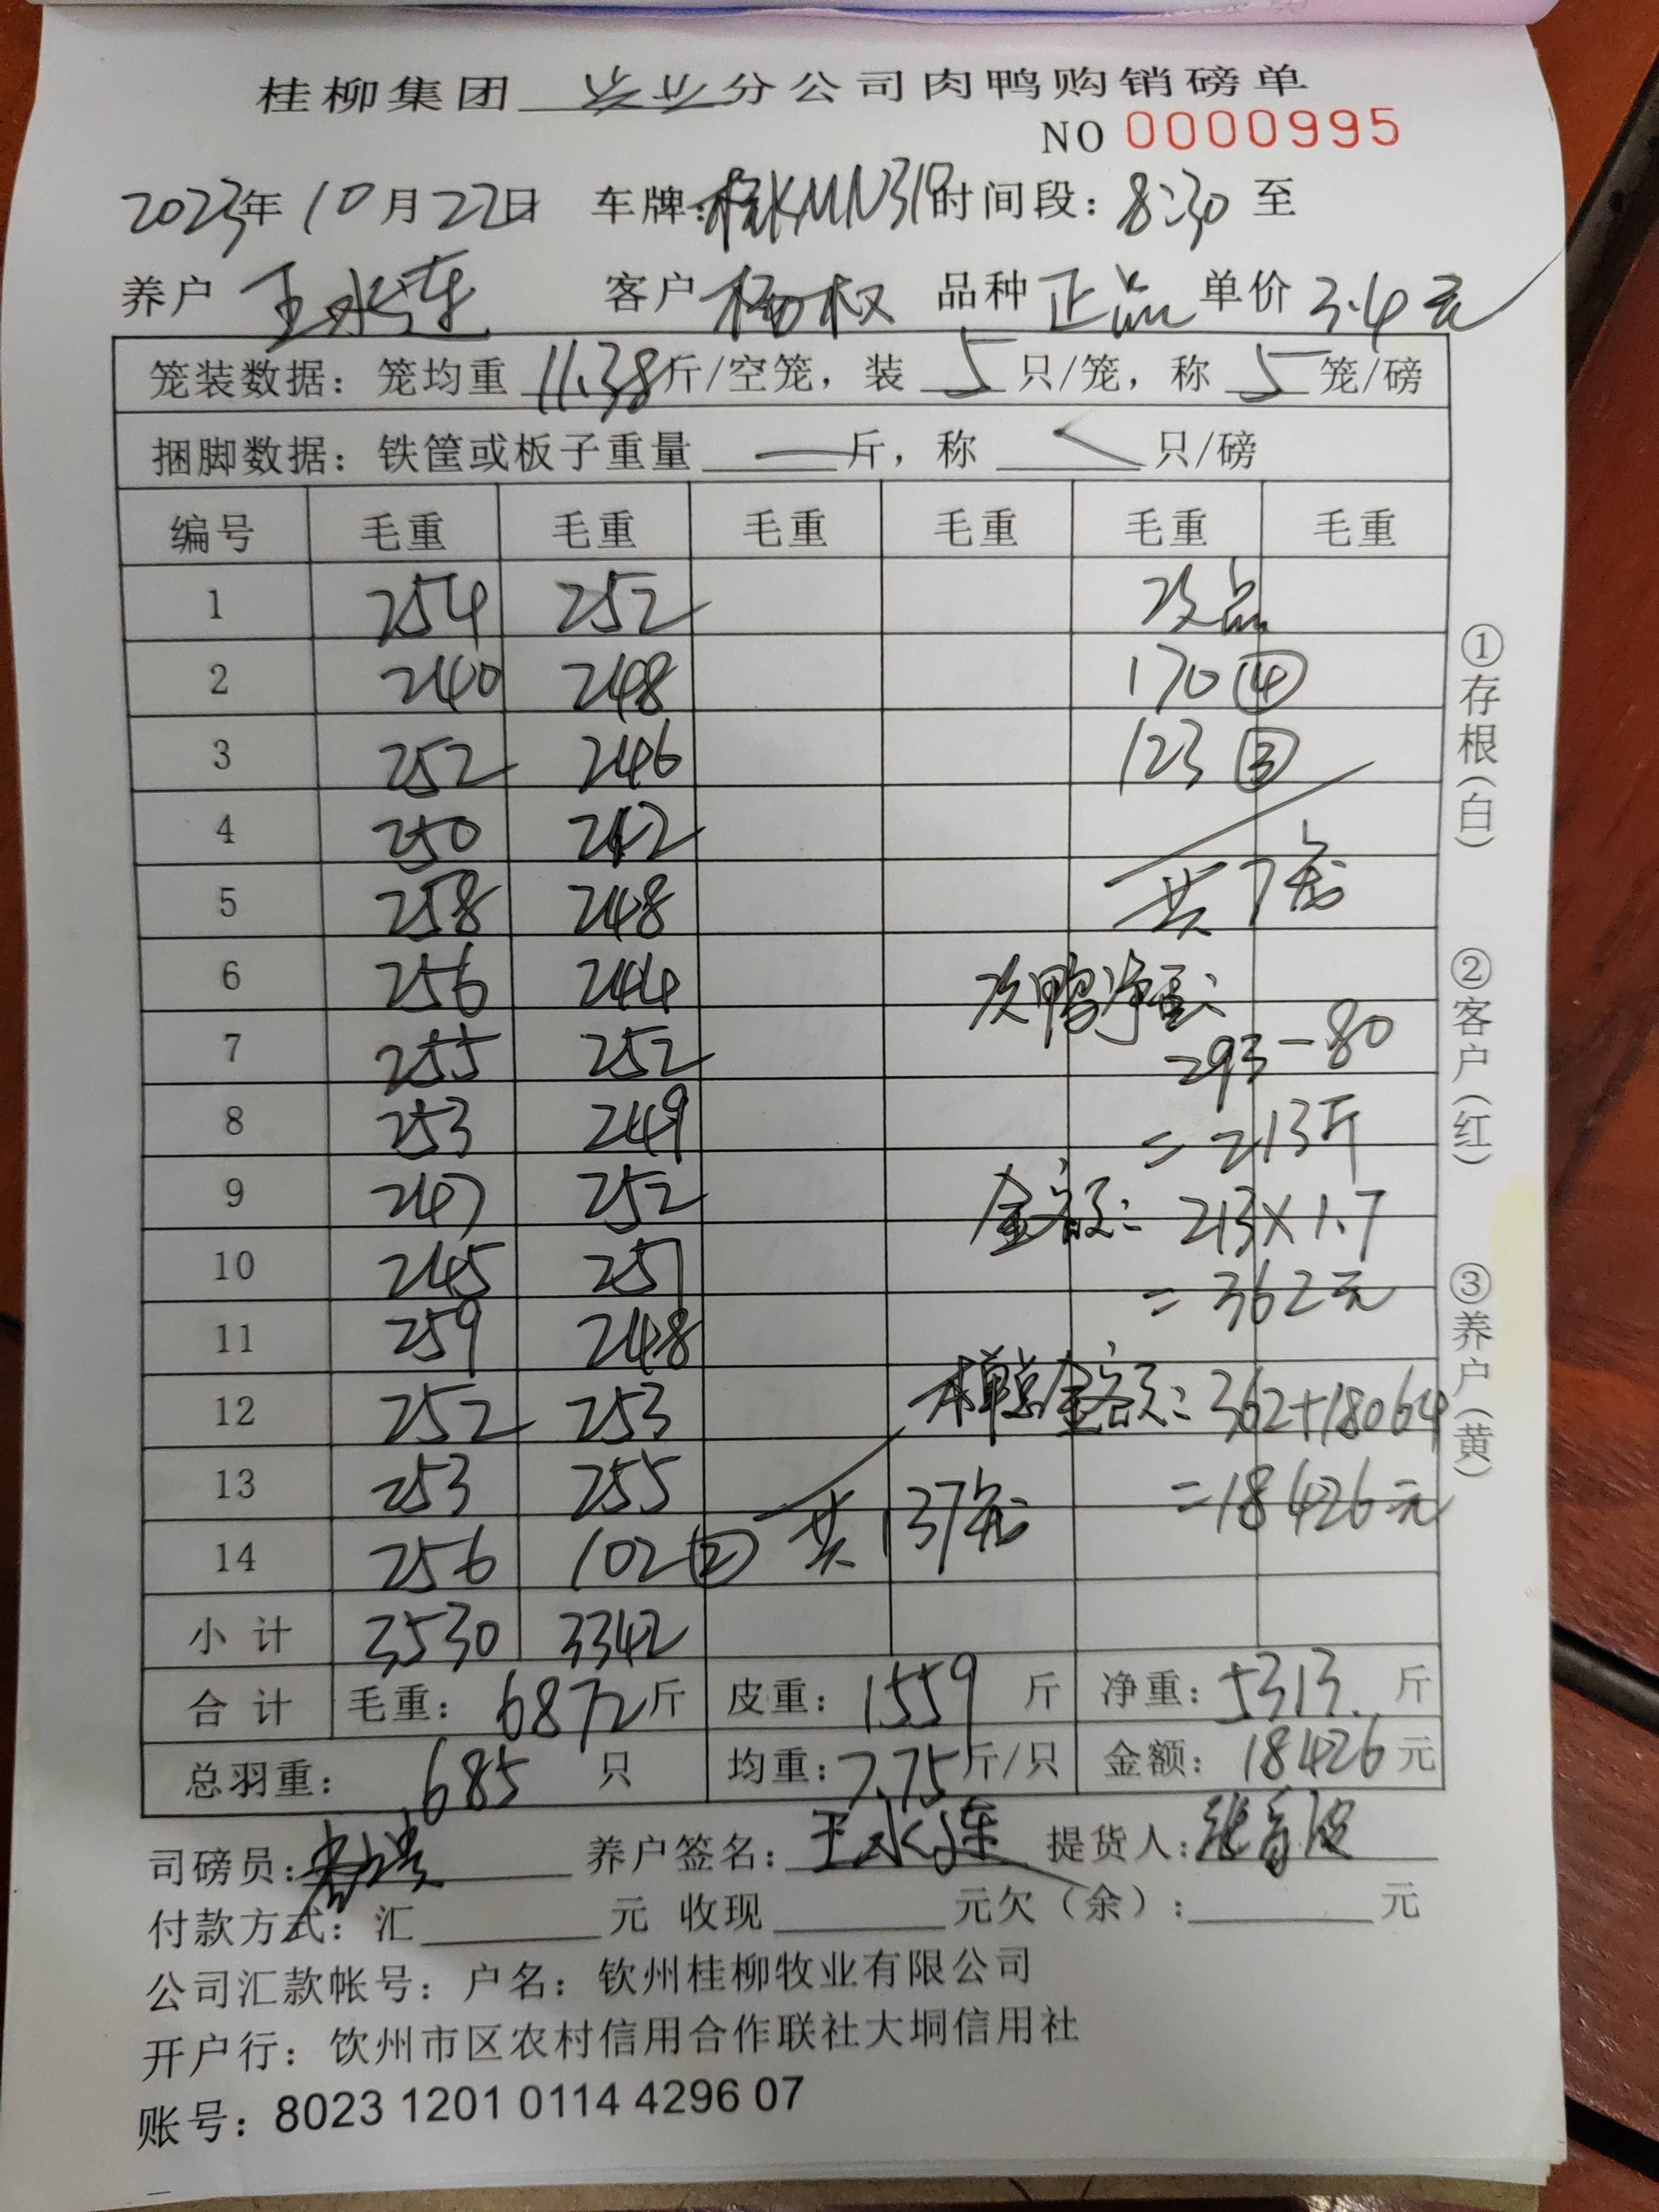 桂柳集团 六 分公司肉鸭购销磅单
NO 0000995
2023年 10月 22日 车牌:桂KMN319 时间段: 8:30 至
养户 王水连 客户 杨权 品种 正品 单价 3.4元
笼装数据: 笼均重 11.38斤/空笼, 装 5 只/笼, 称 5 笼/磅
捆脚数据: 铁筐或板子重量 — 斤, 称 只/磅
编号 毛重 毛重 毛重 毛重 毛重 毛重
1 254 252 次品
2 240 248 170 ④
3 252 246 123 ③
4 250 242
5 258 248 共7笼
6 256 244 次鸭净重:
7 255 252 293-80
8 253 249 = 213斤
9 247 252 金额: 213×1.7
10 245 251 = 362元
11 259 248
12 252 253 本单总金额: 362+18064
13 253 255 =18426元
14 256 102② 共137笼
小计 3530 3342
合计 毛重: 6872斤 皮重: 1559 斤 净重: 5313. 斤
总羽重: 685 只 均重: 7.75斤/只 金额: 18426元
司磅员: 养户签名: 王水连 提货人:
付款方式: 汇 元 收现 元欠(余): 元
公司汇款帐号: 户名: 钦州桂柳牧业有限公司
开户行: 饮州市区农村信用合作联社大垌信用社
账号: 8023 1201 0114 4296 07
①存根(白)
②客户(红)
③养户(黄)